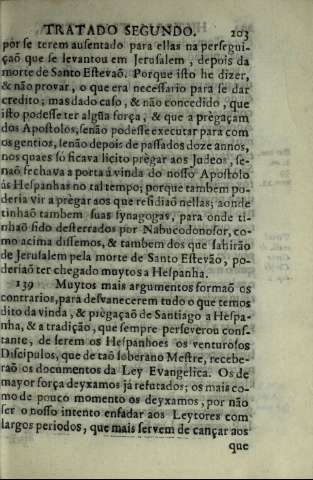 TRATADO SEGUNDO. 203
por se terem ausentado para ellas na persegui-
çaõ que se levantou em Jerusalem, depois da
morte de Santo Estevaõ. Porque isto he dizer,
& não provar, o que era necessario para se dar
credito; mas dado caso, & não concedido, que
isto podesse ter algũa força, & que a prégaçam
dos Apostolos, senão podesse executar para com
os gentios, senão depois de passados doze annos,
nos quaes só ficava licito prégar aos Judeos, se-
naõ fechava a porta á vinda do nosso Apostolo
ás Hespanhas no tal tempo; porque tambem po-
deria vir a prégar aos que residiaõ nellas; aonde
tinhaõ tambem suas synagogas, para onde ti-
nhaõ sido desterrados por Nabucodonosor, co-
mo acima dissemos, & tambem dos que sahirão
de Jerusalem pela morte de Santo Estevão, po-
deriaõ ter chegado muytos a Hespanha.
139 Muytos mais argumentos formaõ os
contrarios, para desvanecerem tudo o que temos
dito da vinda, & prégaçaõ de Santiago a Hespa-
nha, & a tradição, que sempre perseverou cons-
tante, de serem os Hespanhoes os venturosos
Discipulos, que de taõ soberano Mestre, recebe-
raõ os documentos da Ley Evangelica. Os de
mayor força deyxamos já refutados; os mais co-
mo de pouco momento os deyxamos, por não
ser o nosso intento enfadar aos Leytores com
largos periodos, que mais servem de cançar aos
que